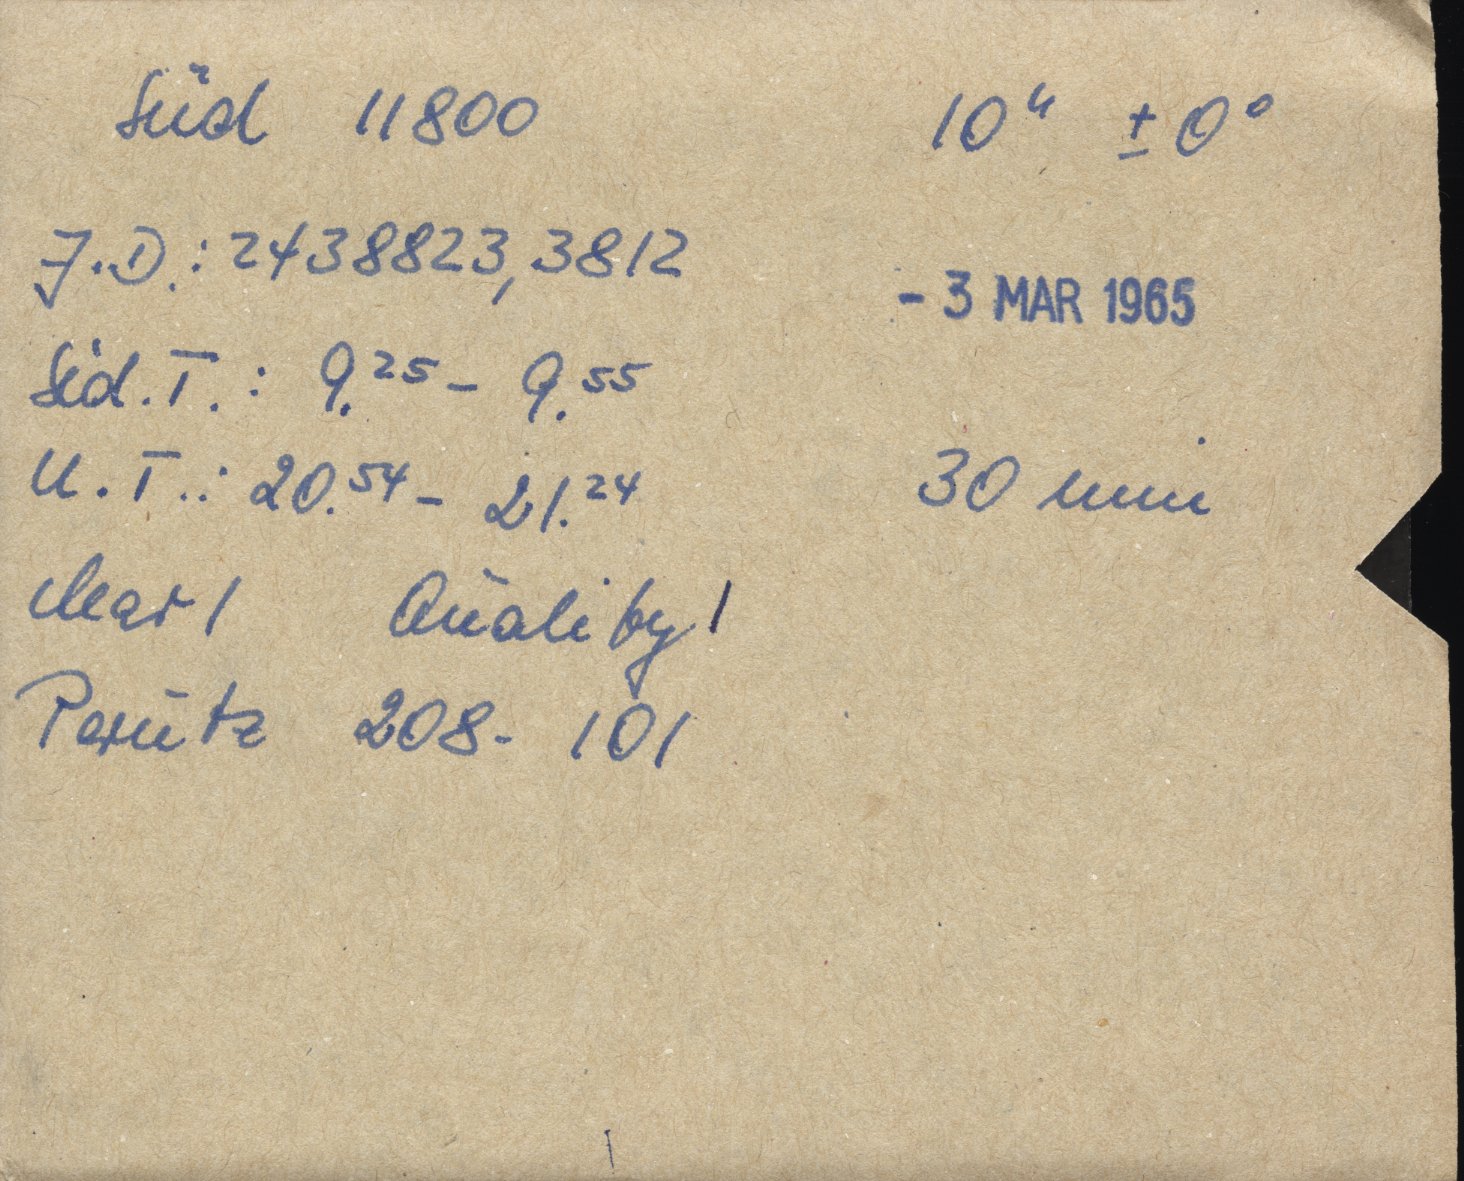 Süd 11800 10ʰ ± 0°
J.D.: 2438823,3812
- 3 MAR 1965
Sid.T.: 9.²⁵ - 9.⁵⁵
U.T.: 20.⁵⁴ - 21.²⁴ 30 min
clear 1 Quality 1
Perutz 208-101